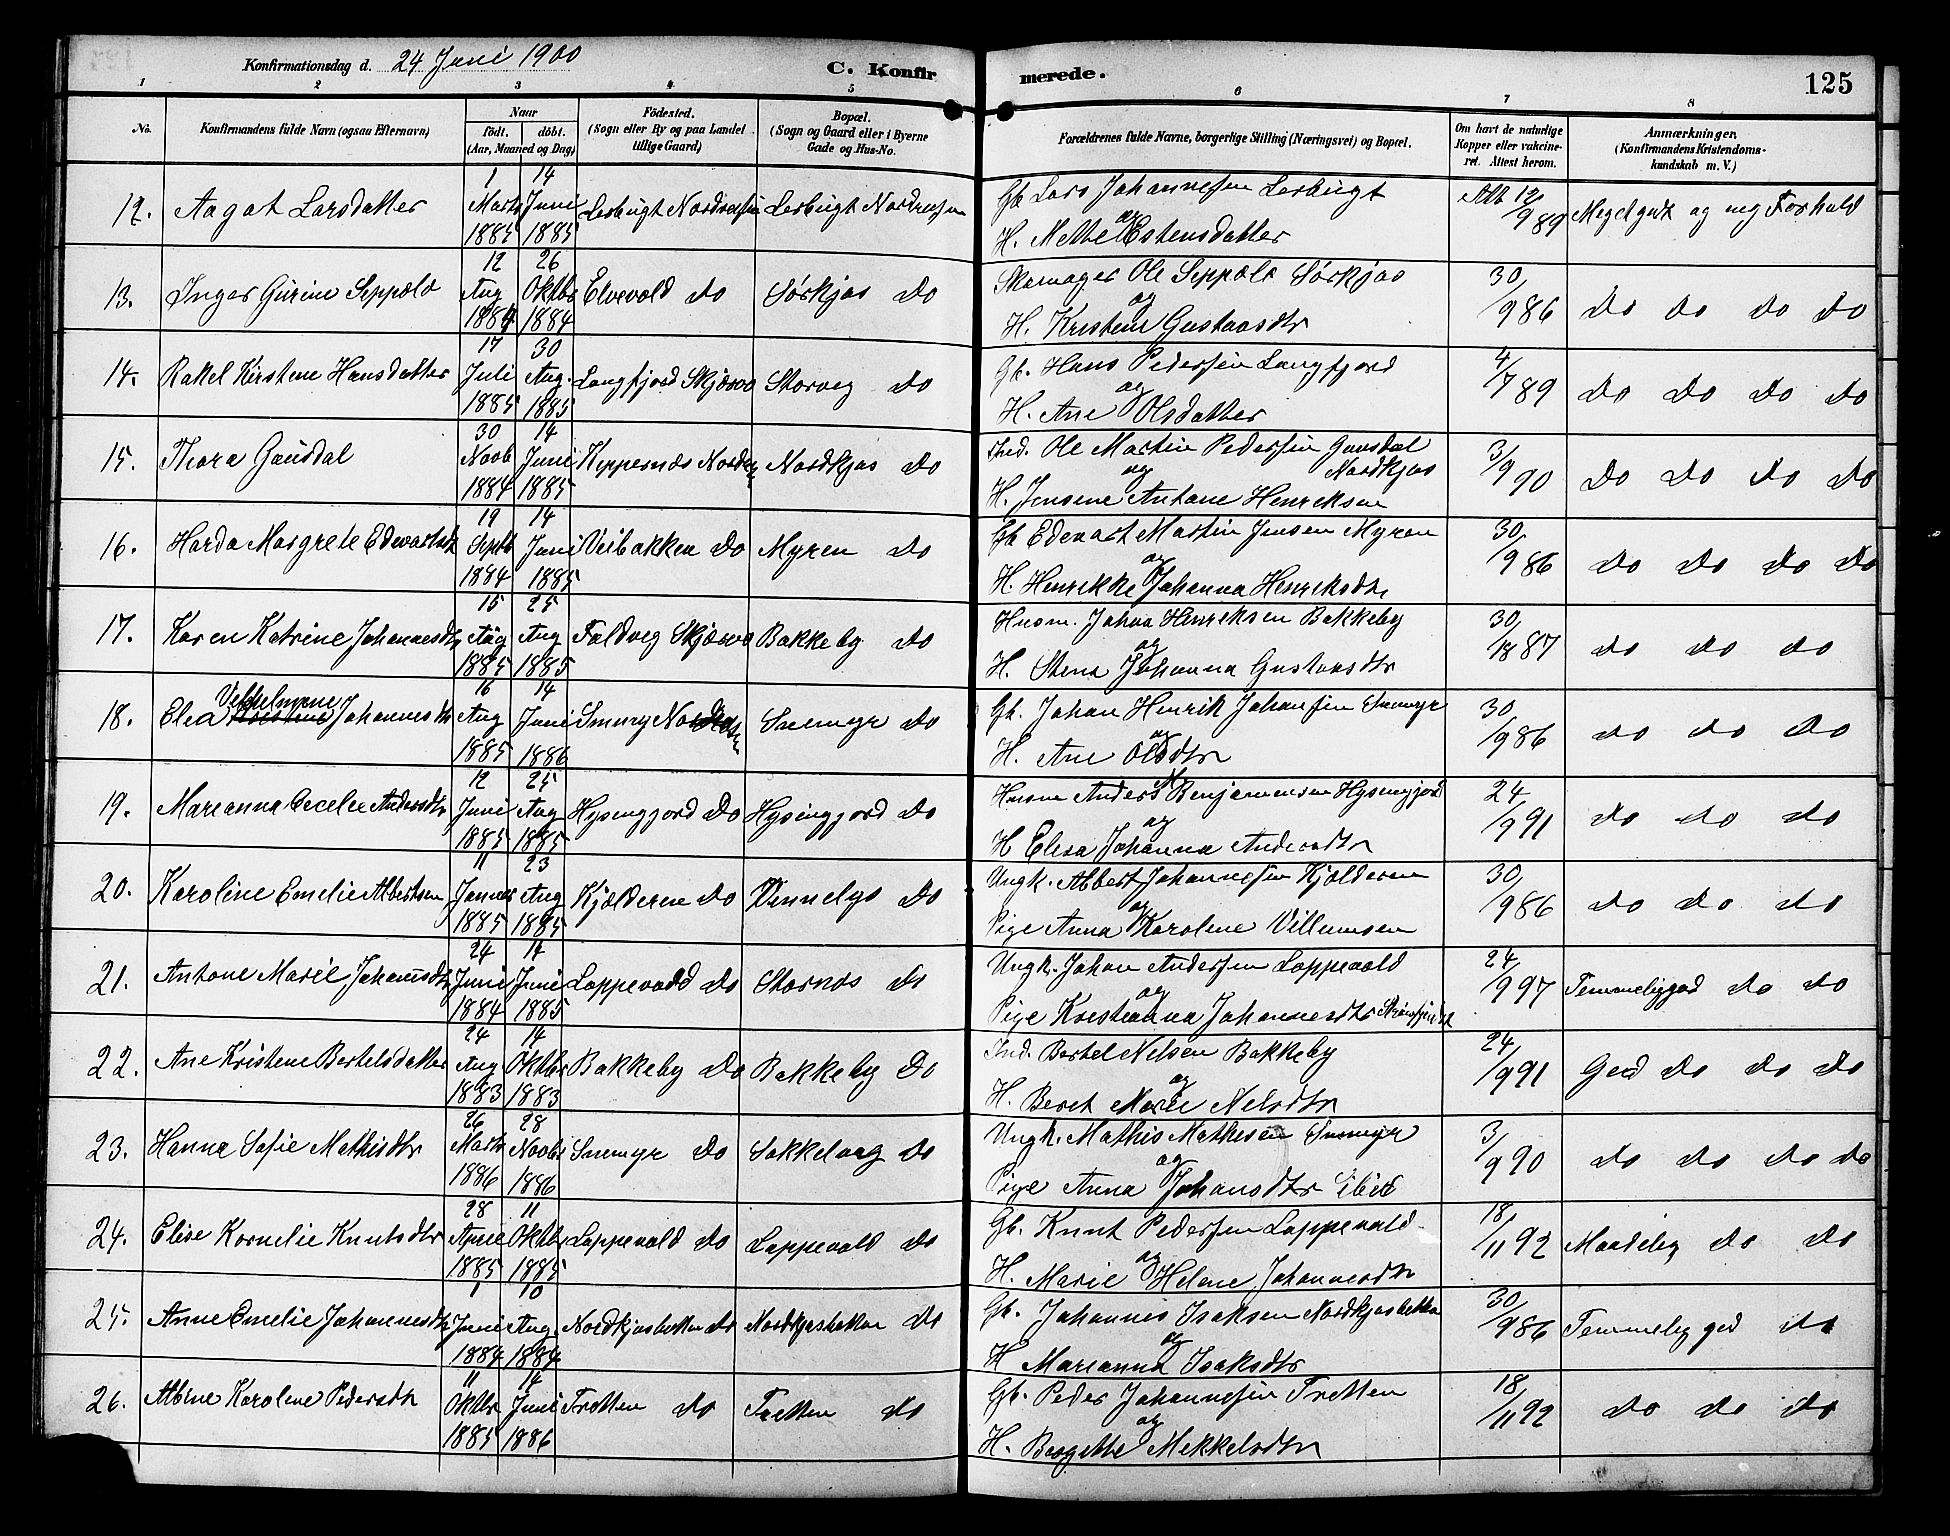 Konfirmationsdag d. 24 Juni 1900
C. Konfirmerede.
125
1 2 3 4 5 6 7 8
No.
Konfirmandens fulde Navn (ogsaa Efternavn)
Naar
födt. döbt.
(Aar, Maaned og Dag)
Födested.
(Sogn eller By og paa Landet
tillige Gaard)
Bopæl.
(Sogn og Gaard eller i Byerne
Gade og Hus-No.
Forældrenes fulde Navne, borgerlige Stilling (Næringsvei) og Bopæl.
Om havt de naturlige
Kopper eller vakcine-
ret. Attest herom.
Anmærkninger.
(Konfirmandens Kristendoms-
kundskab m. V.)
12. Aagot Larsdatter
1 Marts 1885
14 Juni 1885
Lerbugt Lerbugt
Gb Lars Johannesen Lerbugt
og
H. Mette Estensdatter
Att 12/9 89
Meget godt og meg Forhold
13. Inger Gurine Seppola
12 Aug 1884
26 Oktbr 1884
Elvevold do
Sørkjos do
Skomager Ole Seppola Sørkjos
og
H. Kristine Gustavsdtr
30/9 86
do do do do
14. Rakel Kirstene Hansdatter
17 Juli 1885
30 Aug. 1885
Langfjord Skjærvø
Storvig do
Gb. Hans Pedersen Langfjord
og
H. Ane Olsdatter
4/7 89
do do do do
15. Thora Gausdal
30 Novb 1884
14 Juni 1885
Keppernæs
Nordkjos do
Ind. Ole Martin Pedersen Gausdal
Nordkjos
og
H. Jensine Antone Henriksen
3/9 90
do do do do
16. Harda Margrete
19 Septb 1884
14 Juni 1885
Veibakken do
Myren do
Gb Edevart Martin Jensen Myren
og
H. Henrikke Johanna Henriksdtr
30/9 86
do do do do
17. Karen Katrine Johannesdtr
15 Aug 1885
25 Aug 1885
Faldvig Skjærvø
Bakkeby do
Husm. Johan Henriksen Bakkeby
og
H. Stena Johanna Gustavsdtr
30/ 87
do do do
18. Elea Johannesdtr
16 Aug 1885
14 Juni 1886
Snemyr do
Gb. Johan Henrik Johansen Snemyr
og
H. Ane Olsdtr
30/9 86
do do do
19. Marianna Cecelie Andersdtr
12 Juni 1885
25 Aug 1885
Hysingjord do
Hysingjord do
Husm Anders N Benjaminsen Hysingjord
og
H Elisa Johanna Andersdtr
24/9 91
do do do
20. Karoline Emelie Albertsen
11 Januar 1885
23 Aug 1885
Kjælderen do
Vinnelys do
Ungk. Albert Johannesen Kjælderen
og
Pige Anna Karolene Villumsen
30/9 86
do do do
21. Antone Marie Johansdtr
24 Juni 1884
14 Juni 1885
Lappevold do
Stornæs do
Ungk. Johan Andersen Lappevold
og
Pige Kristianna Johannesdtr
24/9 97
Temmeliggod do do
22. Ane Kristene Bertelsdatter
24 Aug 1883
14 Oktbr 1883
Bakkeby do
Bakkeby do
Ind. Bertel Nelsen Bakkeby
og
H. Beret Marie Nelsdtr
24/9 91
God do do do
23. Hanna Sofie Mathisdtr
26 Marts 1886
28 Novbr 1886
Snemyr do
Sokkelvog do
Ungk. Mathis Mathisen Snemyr
og
Pige Anna Johansdtr Ibid
3/9 90
do do do do
24. Elise Kornelie Knutsdtr
28 April 1885
11 Oktbr 1885
Lappevold do
Lappevold do
Gb. Knut Pedersen Lappevold
og
H. Marie Helene Johannesdtr
18/11 92
Maadelig do do
25. Anne Emelie Johannesdtr
1 Juni 1884
10 Aug. 1884
Nordkjosbotten do
Nordkjosbotten do
Gb. Johannes Isaksen Nordkjosbotten
og
H Marianna Isaksdtr
30/9 86
Temmelig god do
26. Albine Karolene Pedersdtr
11 Oktbr 1885
14 Juni 1886
Tretten do
Tretten do
Gb. Peder Johannesen Tretten
og
H. Bergette Mekkelsdtr
18/11 92
do do do